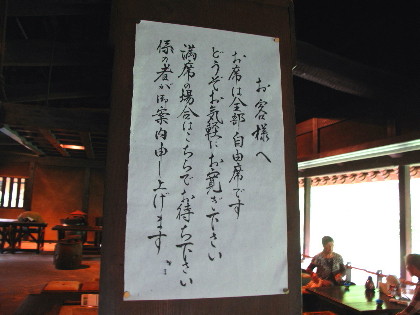 お客様へ
お席は全部自由席です
どうぞお気軽にお寛ぎ下さい
満席の場合はこちらでお待ち下さい
係の者が御案内申し上げます